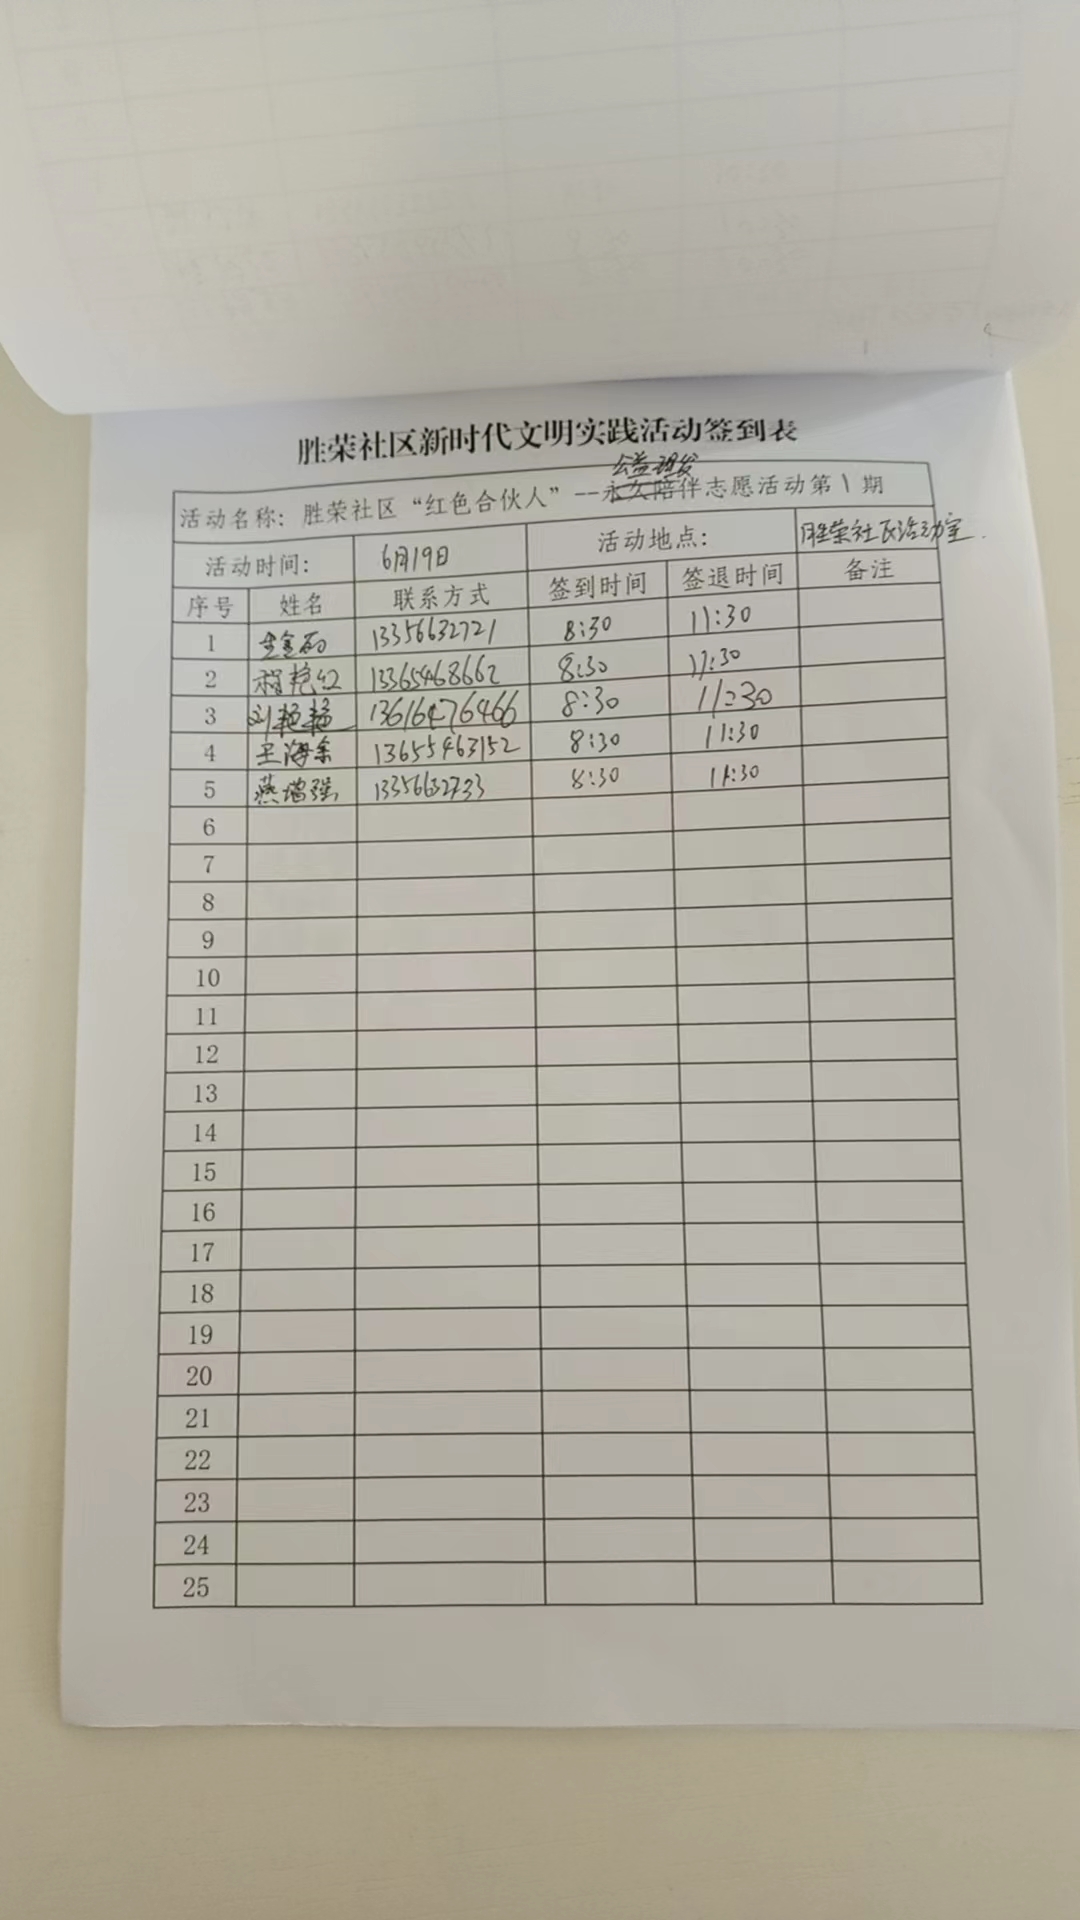 胜荣社区新时代文明实践活动签到表
公益理发
活动名称：胜荣社区“红色合伙人”--永久陪伴志愿活动第1期
活动时间： 6月19日 活动地点： 胜荣社区活动室.
序号 姓名 联系方式 签到时间 签退时间 备注
1 13356632721 8:30 11:30
2 程艳红 13365468662 8:30 11:30
3 刘艳艳 13616476466 8:30 11:30
4 王海东 13655463152 8:30 11:30
5 燕增强 13356632733 8:30 11:30
6
7
8
9
10
11
12
13
14
15
16
17
18
19
20
21
22
23
24
25